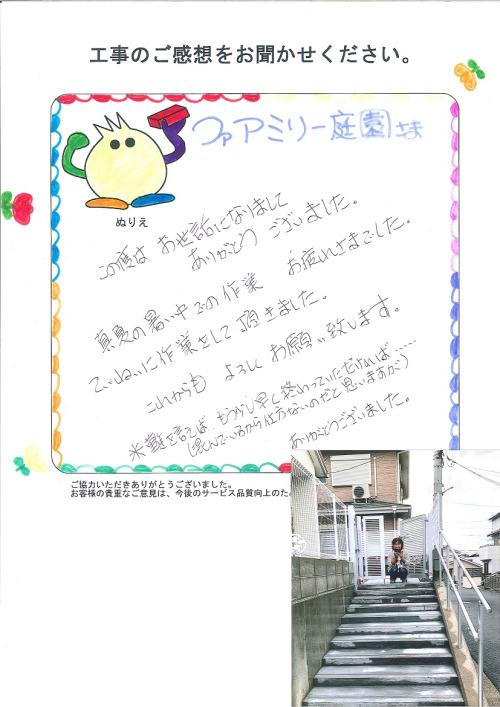 工事のご感想をお聞かせください。
ファアミリー庭園さま
ぬりえ
この度は お世話になりまして
ありがとう ございました。
真夏の暑い中での作業 お疲れさまでした。
ていねいに作業をして頂きました。
これからも よろしく お願い致します。
を言えば、もう少し早く終わっていただければ……
(混んでいるから仕方ないのだと思いますが)
ありがとうございました。
ご協力いただきありがとうございました。
お客様の貴重なご意見は、今後のサービス品質向上のた